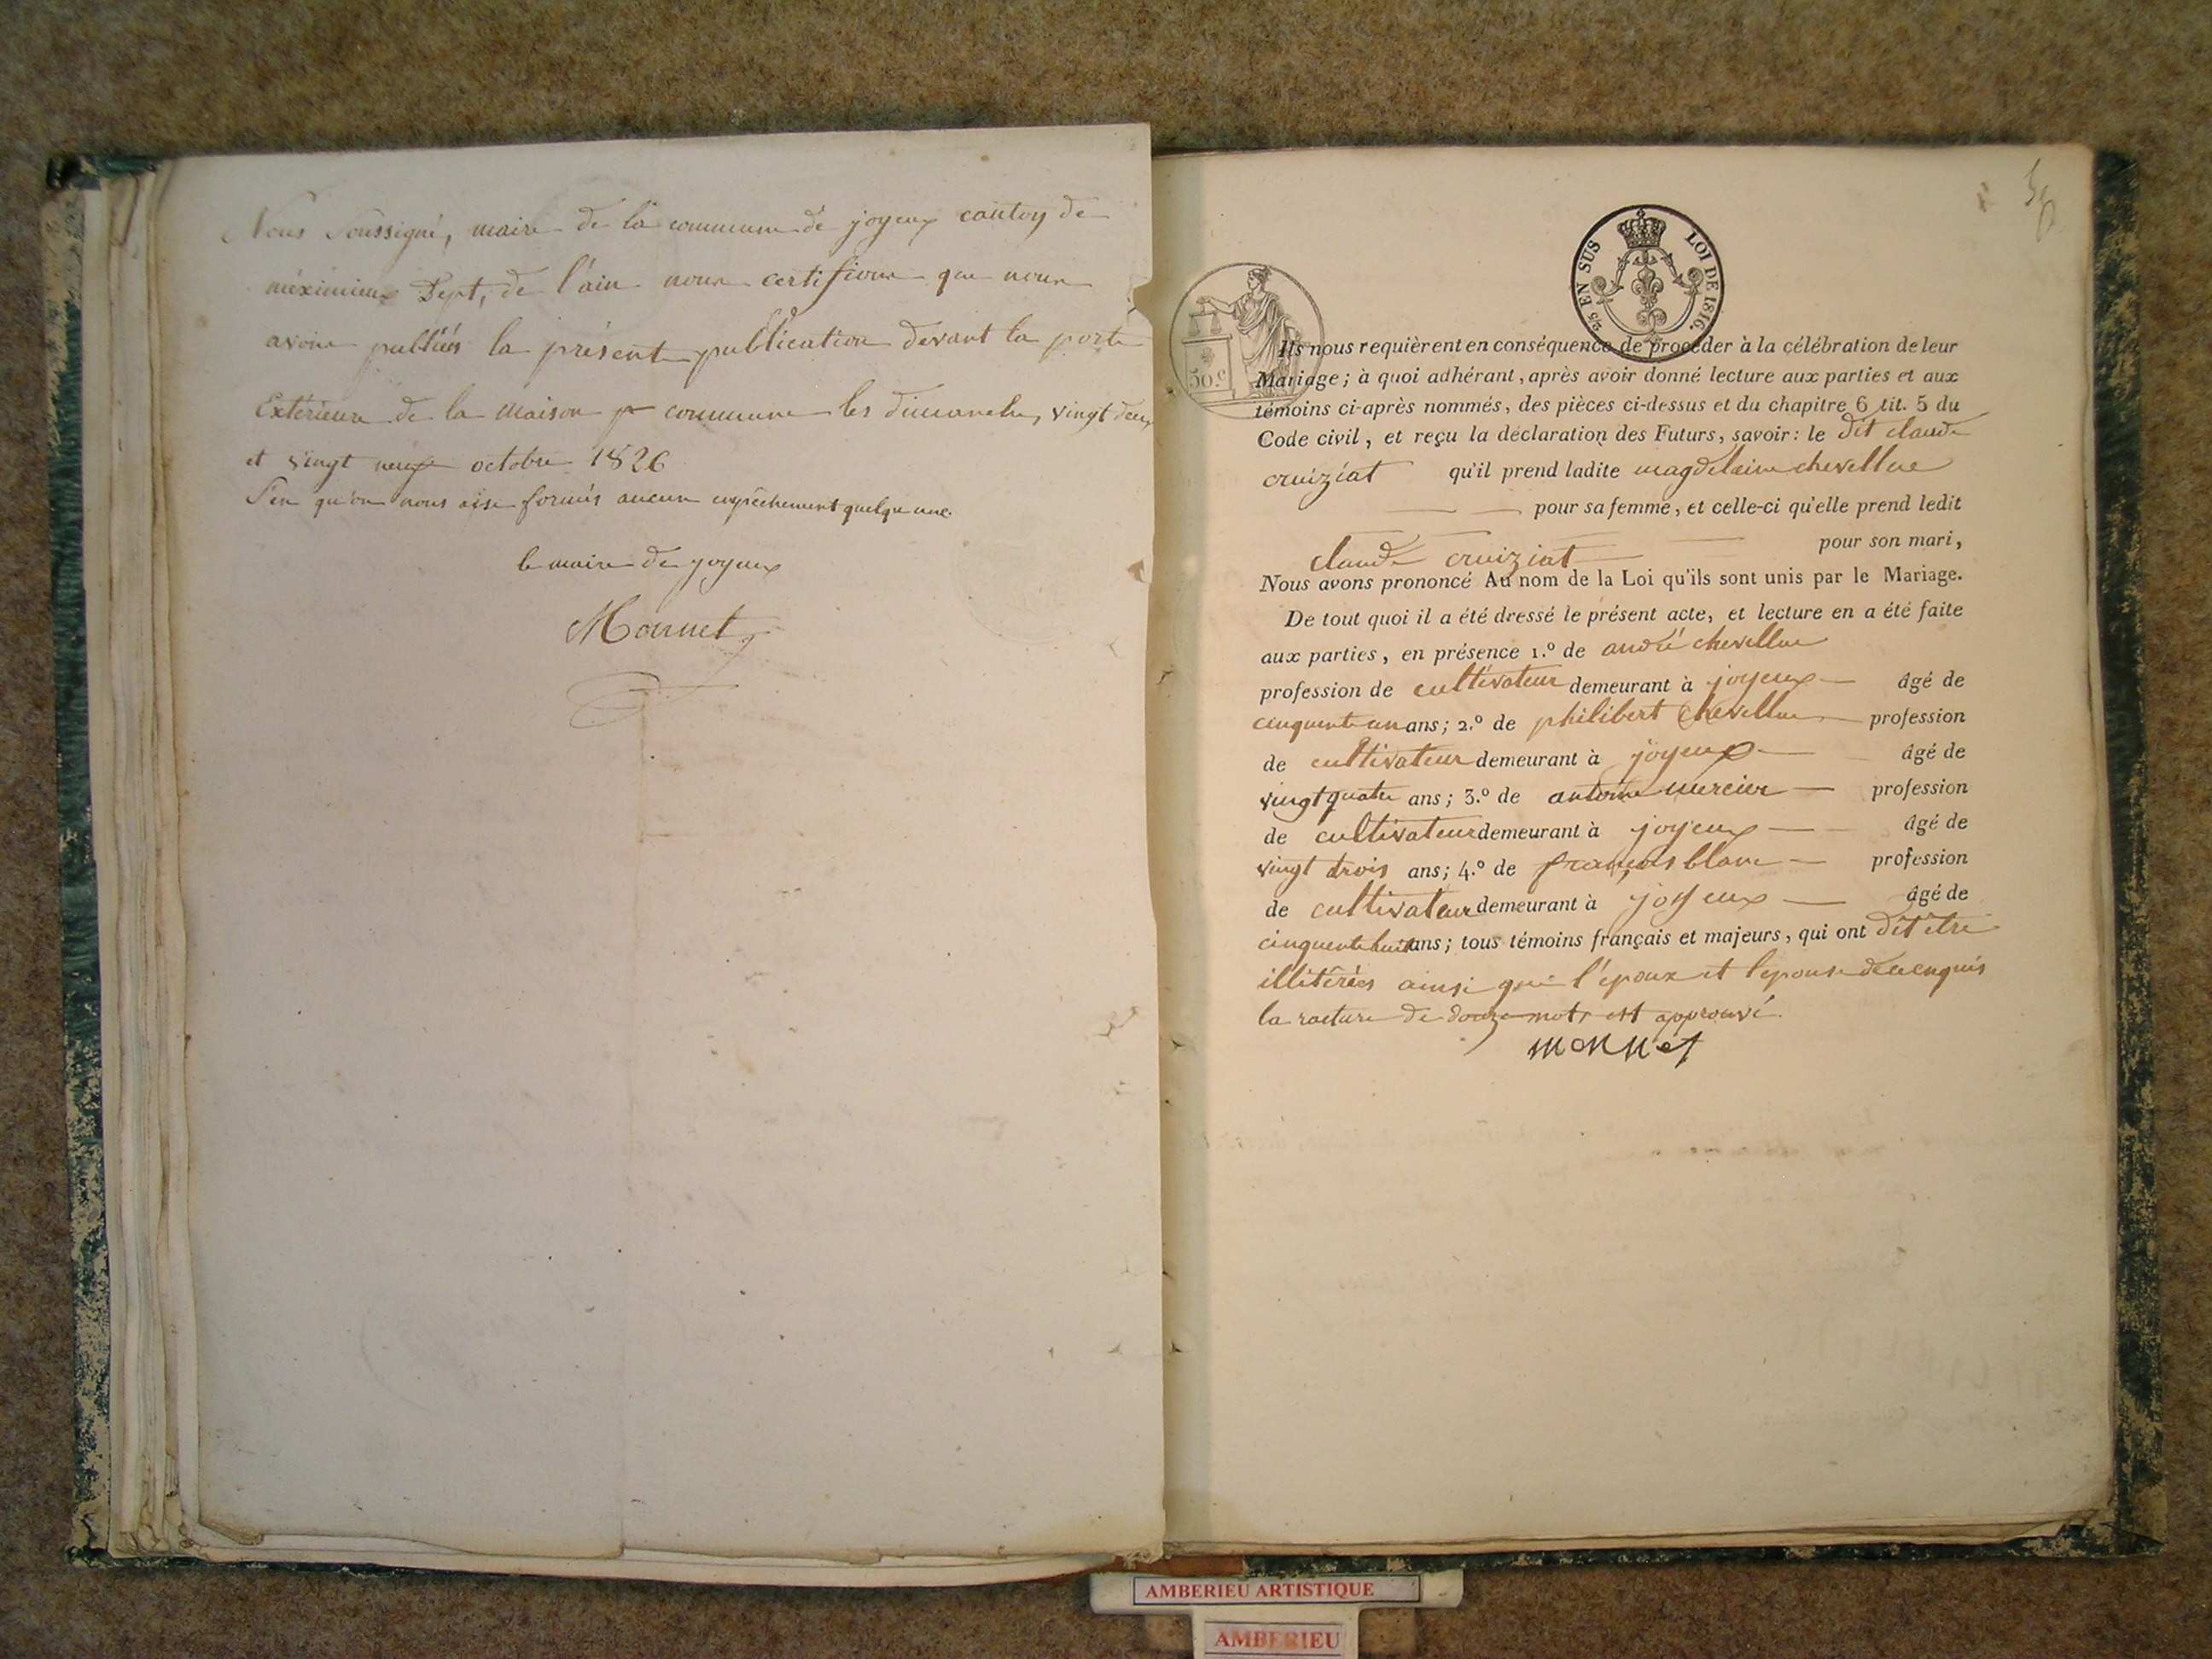 Nous Soussigné, maire de la commune de joyeux canton de
méximieux Dept, de l'ain nous certifions que nous
avons publiés la présent publication devant la porte
Extérieure de la Maison commune les dimanche, vingt deux
et vingt neuf octobre 1826
S'en qu'on nous aise formés aucun empêchement quelqu'une.
le maire de joyeux
Monnet
50.c
2/5 EN SUS LOI DE 1816.
Ils nous requièrent en conséquence de procéder à la célébration de leur
Mariage; à quoi adhérant, après avoir donné lecture aux parties et aux
témoins ci-après nommés, des pièces ci-dessus et du chapitre 6 tit. 5 du
Code civil, et reçu la déclaration des Futurs, savoir: le dit claude
cruiziat qu'il prend ladite magdelaine chevellue
pour sa femme, et celle-ci qu'elle prend ledit
claude cruiziat pour son mari,
Nous avons prononcé Au nom de la Loi qu'ils sont unis par le Mariage.
De tout quoi il a été dressé le présent acte, et lecture en a été faite
aux parties, en présence 1.º de andré chevellue
profession de cultivateur demeurant à joyeux âgé de
cinquente un ans; 2.º de philibert chevellue profession
de cultivateur demeurant à joyeux âgé de
vingt quatre ans; 3.º de antoine mercier profession
de cultivateur demeurant à joyeux âgé de
vingt trois ans; 4.º de françois blanc profession
de cultivateur demeurant à joyeux âgé de
cinquente huit ans; tous témoins français et majeurs, qui ont dit être
illitérées ainsi que l'époux et l'epouse de ce enquis
la racture de douze mots est approuvé.
monnet
AMBERIEU ARTISTIQUE
AMBERIEU